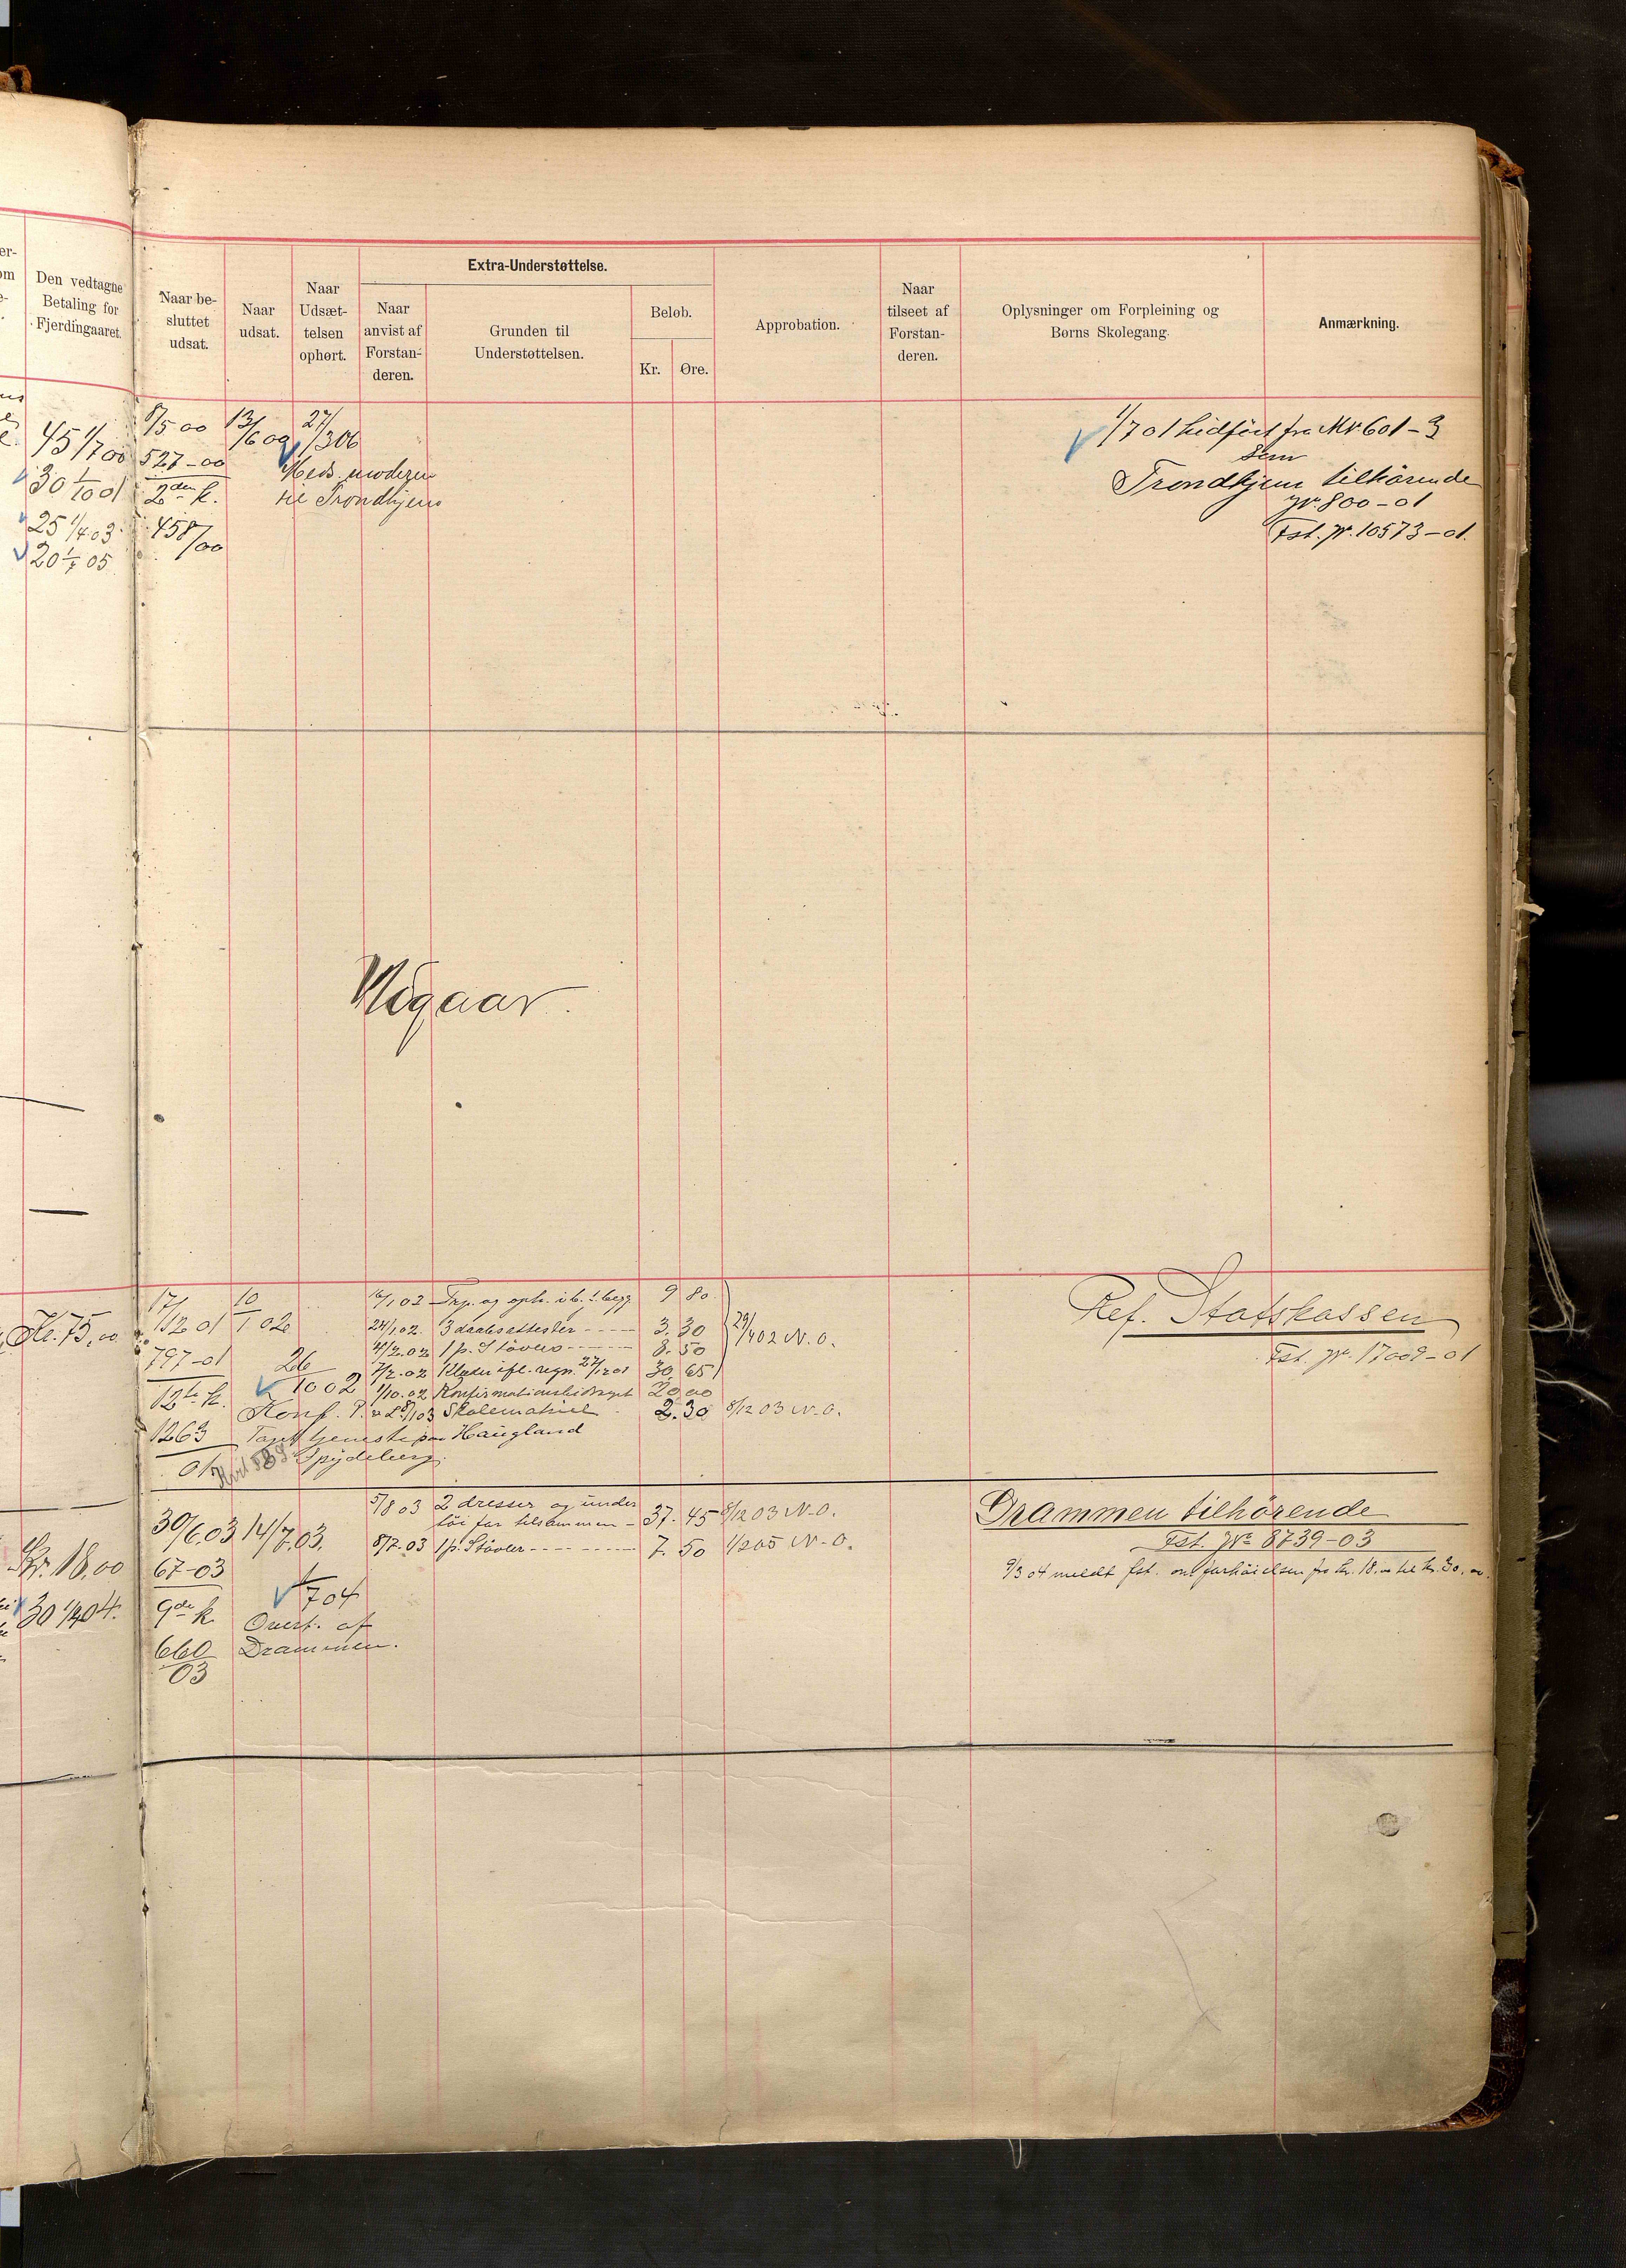 Den vedtagne
Betaling for
Fjerdingaaret.
Naar be-
sluttet
udsat.
Naar
udsat.
Naar
Udsæt-
telsen
ophørt.
Extra-Understøttelse.
Naar
anvist af
Forstan-
deren.
Grunden til
Understøttelsen.
Beløb.
Kr.
Øre.
Approbation.
Naar
tilseet af
Forstan-
deren.
Oplysninger om Forpleining og
Børns Skolegang.
Anmærkning.
45 1/7 00
30 1/10 01
25 1/4 03
20 1/7 05
8/5 00
527-00
2den k.
458/00
13/6 00
27/3 06
Meds. moderen
til Trondhjem
1/7 01 hidført fra Nr 601-3
som
Trondhjem tilhørende
jr. 800-01
Fst. jr. 10573-01.
Vegaar.
Kr. 75,00
17/12 01
797-01
12te k.
1263
01
10/1 02
26/10 02
Konf.
tjeneste paa Haugland
Spydeberg.
16/1 02
9 80
24/1 02. 3 daabsattester 3.30
4/2.02 1 p. Støvler 8.50
7/2.02 Klæder ifl. regn. 27/12 01 30 65
1/10.02 Konfirmationsbidraget 20,00
Skolematriel 2.30 8/12 03 N.O.
29/4 02 N.O.
Ref. Statskassen
Fst. jr. 17009-01
Kr. 18,00
30 1/4 04.
30/6 03
67-03
9de k.
660
03
14/7 03.
1/7 04
Overt. af
Drammen.
5/8 03 2 dresser og under
tøi for tilsammen 37.45 8/12 03 N.O.
8/7.03 1 p. Støvler 7.50 1/2 05 N.O.
Drammen tilhørende
Fst. Nr 8739-03
9/3 04 meldt fst. om forhøielsen fra kr. 18,00 til kr. 30,00.